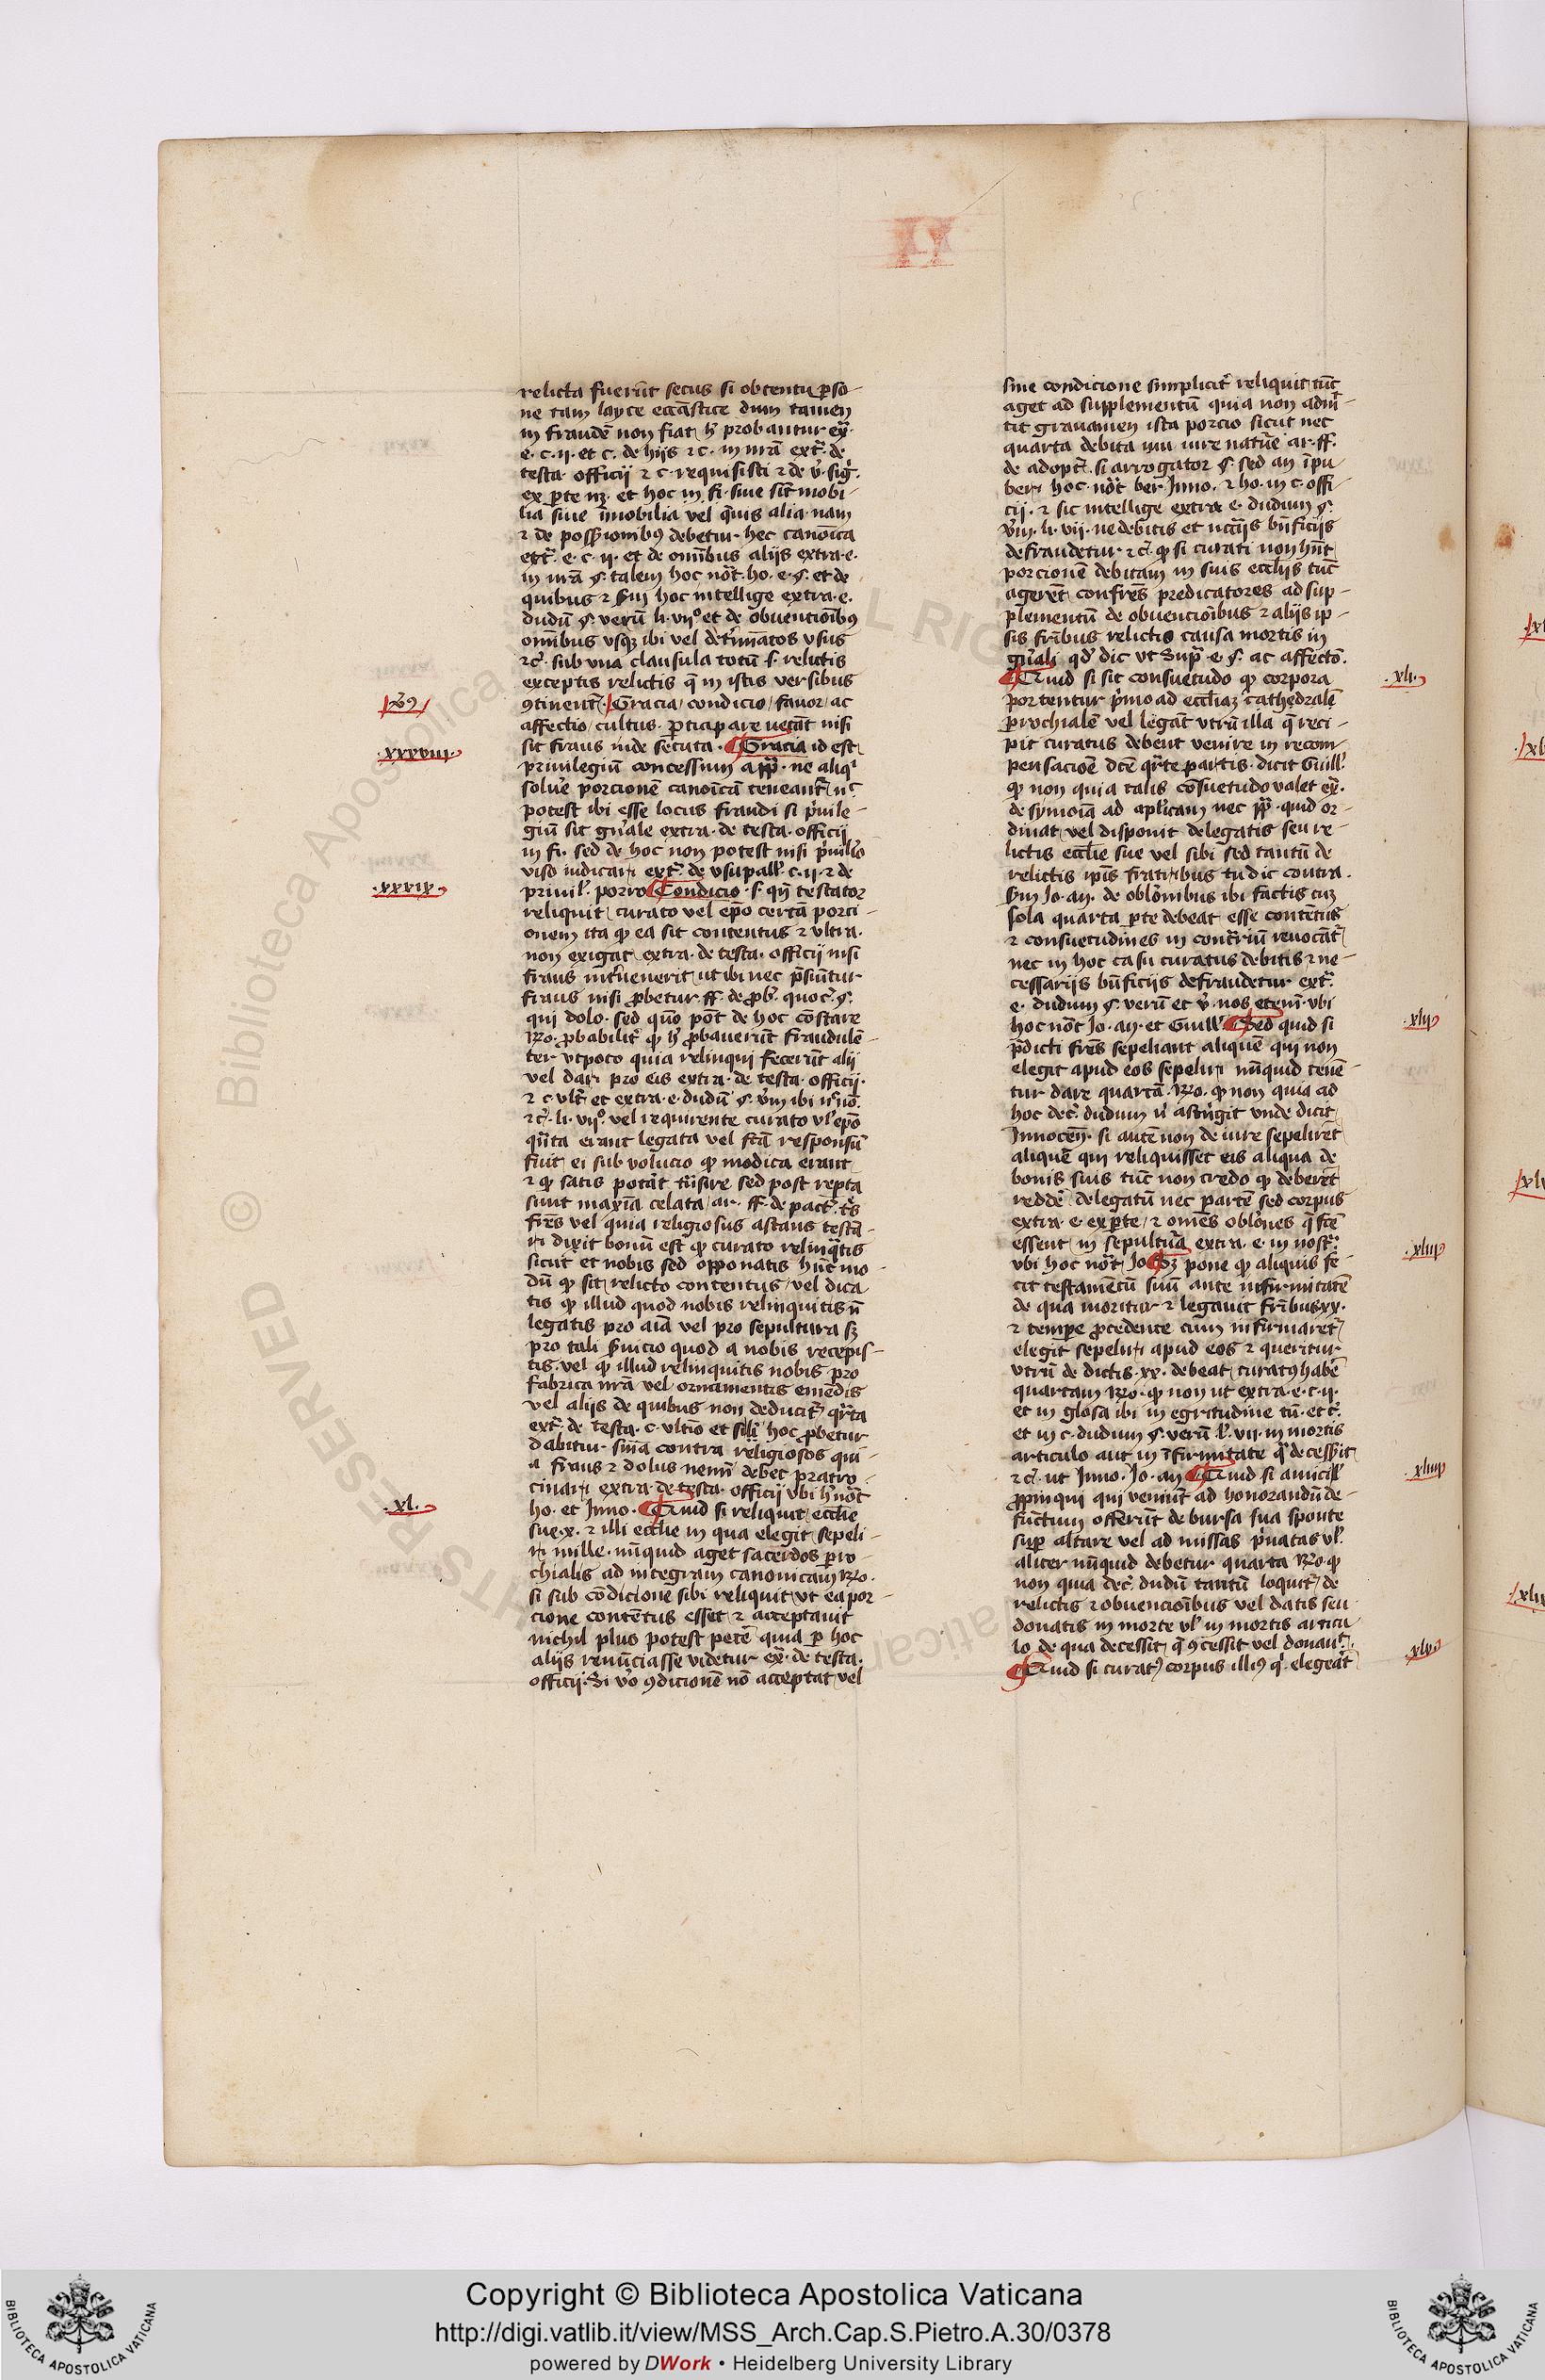 II
relicta fuerūt secus si obtentu ꝑso-
ne tam layce eccāstice dum tamen
in fraudē non fiat h̄ probantur ex̄ͣ·
e· c· ij· et c. de hijs ⁊ c· in nrā extͣ· de
testa· officij ⁊ c· requisisti ⁊ de v̓· sig̓·
ex ꝑte nr̄· et hoc in fi· siue sīt mobi-
lia siue īmobilia vel q̄uis alia· nam
⁊ de possiōnibꝰ debetur· hec canoīca
extͣ· e· c· ij· et de omībus alijs extra· e·
in nrā §. talem hoc nōt· ho· e· §· et de
quibus ⁊ s̄m hoc intellige extra· e·
dudū §· verū li· vijº et de obuencioībꝰ
omībus vsqꝫ ibi vel det̓mīatos vsus
⁊c̓· sub vna clausula totū s· relictis
exceptis relictis q̄ in istis versibus
ꝯtinentͬ· Gracia/ condicio/ fauor/ ac
affectio/ cultus· ꝑticipare uetāt nisi
sit fraus inde secuta· ¶Gracia id est
priuilegiū concessum a pp̄· ne aliqͥ
solue̓ porcionē canoīcā teneant̄ nͨ
potest ibi esse locus fraudi si p̓uile-
giū sit gn̓ale extra· de testa· officij
in fi· sed de hoc non potest nisi p̓uil̓o
viso iudicari extͣ· de vsupall̓· c· ij· ⁊ de
priuil̓· porro ¶Condicio· s· qn̄ testator
reliquit/ curato vel ep̄o certā porci-
onem ita ꝙ ea sit contentus ⁊ vltra·
non exigat/ extra· de testa· officij nisi
fraus int̓uenerit/ ut ibi nec p̄siūtur
fraus nisi ꝓbetur· ff· de ꝓb̓· quoc̓· §·
qui dolo· sed quō pōt de hoc cōstare
R̄o· ꝓbabilit̓ ꝙ h̓ ꝓbauerūt fraudulē-
ter utpoto quia relinqui fecerūt alij
vel dari pro eis extra· de testa· officij·
⁊ c vlt̓· et extra· e· dudū §· v̓m ibi nͨ nō·
⁊c̓· li· vijº. vel requirente curato vl̓ ep̄o
qn̄ta erant legata vel fc̄ā responsū
fuit/ ei sub volucio ꝙ modica erant
⁊ ꝙ satis potāt trāsire sed post reperta
sunt maxīa celata/ ar· ff· de pact̓· t̓s
frēs vel quia religiosus astans testā-
ri dixit bonū est ꝙ curato relinqͣtis
sicut et nobis sed opponatis hūc mo-
dū ꝙ sit/ relicto contentus/ vel dica
tis ꝙ illud quod nobis relinquitis n̄
legatis pro aīa vel pro sepultura sꝫ
pro tali s̓uicio quod a nobis recepis-
tis· vel ꝙ illud relinquitis nobis pro
fabrica nrā vel ornamentis emēdis
vel alijs de quibus non deducit̄ qr̄ta
extͣ· de testa· c· vltīo et sil̓r hoc ꝓbetur
dabitur· snīa contra religiosos qui-
a fraus ⁊ dolus nemī debet patro-
cinari extra· de testa· officij vbi h̓ nōt
ho· et Inno· ¶Quid si reliquit/ eccl̓ie
sue· x· ⁊ illi eccl̓ie in qua elegit sepeli-
ri mille· nūquid aget sacerdos ꝑro-
chialis ad integram canonicam R̄o·
si sub cōdicione sibi reliquit/ vt ea por-
cione contētus esset ⁊ acceptauit
nichil plus potest petē quia ꝑ hoc
alijs renūciasse videtur ex̄ͣ· de testa·
officij· Si v̓o ꝯdicionē nō acceptat/ vel
·xxxviii·
·xxxix·
·xl·
sine condicione simplicit̓ reliquit tūc
aget ad supplementū quia non admī-
tit grauamen ista porcio sicut nec
quarta debita iuu iure natūe ar· ff·
de adopt̓· si arrogator §· sed an īpu
beri hoc· nōt ber Inno· ⁊ ho· in c· offi-
cij· ⁊ sic intellige extra e· dudum §·
v̓m· li· vij· ne debitis et ncc̄ijs bn̄ficijs
defraudetur ⁊c̓· ꝙ si curati non hn̄t
porcionē debitam in suis eccl̓ijs tūc
agerēt confrēs predicatores ad sup-
plementū de obuencioībus ⁊ alijs ip-
sis frībus relictis causa mortis in
gn̓ali qd̓ dic vt Supͣ· e· §· ac affectō·
¶Quid si sit consuetudo ꝙ corpora
portentur p̓mo ad eccl̓iaꝫ cathedralē
ꝑrochialē vel legāt vtrū illa q̄ reci-
pit curatus debent venire in recom-
pensacioē dc̄ē qr̄te partis· dicit Guill̓
ꝙ non quia talis cōsuetudo valet ex̄ͣ·
de symoīa ad apl̓icam nec pp̄· quid or-
dinat/ vel disponit de legatis seu re-
lictis eccl̓ie sue vel sibi sed tantū de
relictis ip̄is fratribus tu dic contra·
s̄m Jo· an̄· de oblōnibus ibi factis cuꝫ
sola quarta ꝑte debeat esse contētus
⁊ consuetudines in contͬriū reuocāt̄
nec in hoc casu curatus debitis ⁊ ne-
cessarijs bn̄ficijs defraudetur extͣ·
e· dudum §· verū et v̓· nos etenī· vbi
hoc nōt Jo· an̄· et Guill̓ ¶Sed quid si
p̄dicti frēs sepeliant aliquē qui non
elegit apud eos sepeliri nūquid tene-
tur dare quartā· R̄o· ꝙ non quia ad
hoc dec̓· dudum n̄ astrīgit unde dicit
Innocen̄· si autē non de iure sepelirēt
aliquē qui reliquisset eis aliqua de
bonis suis tūc non credo ꝙ deberēt
redde̓ de legatū nec partē sed corpus
extra· e· ex ꝑte/ ⁊ omēs oblōnes q̄ fc̄ē
essent in sepultura extra· e· in nost̓·
vbi hoc nōt/ Jo ¶Sꝫ pone ꝙ aliquis fe-
cit testamētū suū ante infirmitatē
de qua moritur ⁊ legauit frībus xx·
⁊ tempe ꝓcedente cum infirmaret̄
elegit sepeliri apud eos ⁊ queritur
vtrū de dictis· xx· debeat/ curatꝰ habē
quartam R̄o· ꝙ non ut extra· e· c· ij·
et in glosa ibi in egritudine tū· et c̓·
et in c· dudum §· verū l̓· vij· in mortis
articulo aut in īfirmitate qͣ decessit
⁊c̓· ut Inno· Jo· an̄ ¶Quid si amici vl̓
ꝓpinqui qui veniūt ad honorandū de-
fūctum offerūt de bursa sua sponte
suꝑ altare vel ad missas p̓uatas vl̓
aliter nūquid debetur quarta R̄o· ꝙ
non quia dec̓· dudū tantū loquit̄ de
relictis ⁊ obuencioībus vel datis seu
donatis in morte vl̓ in mortis articu
lo de qua decessit/ q̄ ꝯcessit vel donauͭ·
¶Quid si curatꝰ corpus illiꝰ qͥ elegeāt
·xli·
·xlij
·xliij
·xliiij
·xlv
Copyright © Biblioteca Apostolica Vaticana
http://digi.vatlib.it/view/MSS_Arch.Cap.S.Pietro.A.30/0378
powered by DWork • Heidelberg University Library
BIBLIOTECA APOSTOLICA VATICANA
BIBLIOTECA APOSTOLICA VATICANA